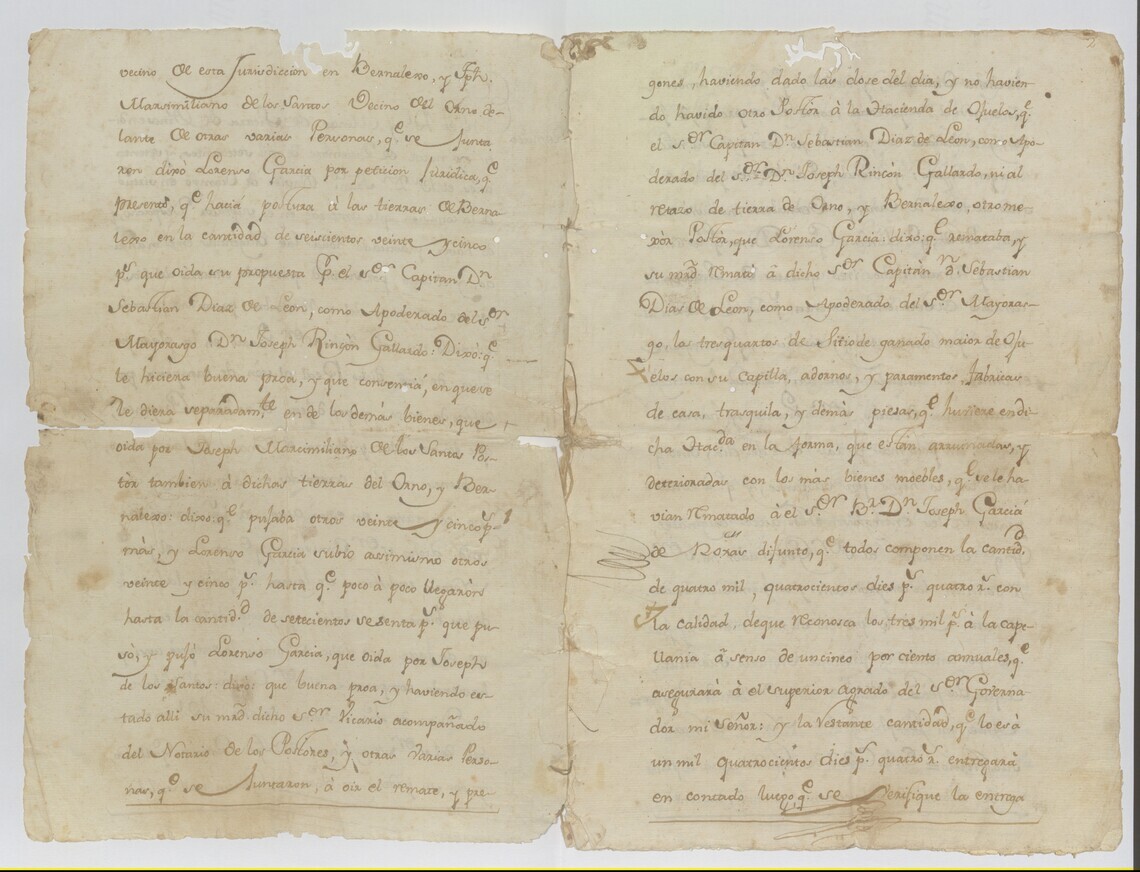 vecino de esta Jurisdiccion en Bernalexo, y Jph.
Marsimiliano de los Santos Vecino del Orno de-
lante de otras varias Personas, q.e se Junta
ron dixo Lorenso Garcia por peticion Juridica, q.e
presentò, q.e hacia postura â las tierras de Berna-
lexo en la cantidad de seiscientos veinte y cinco
p.s que oida su propuesta P.r el s.or Capitan D.n
Sebastian Diaz de Leon, como Apoderado del s.or
Mayorasgo D.n Joseph Rincon Gallardo: Dixo: q.e
le hiciera buena proa, y que consentiá, en que se
le diera separadam.te en de los demás bienes, que
oida por Joseph Marcimiliano de los Santos Pos-
tòr tambien â dichas tierras del Orno, y Ber-
nalexo: dixo: q.e pujaba otros veinte y cinco p.s
más, y Lorenso Garcia subio assimismo otros
veinte y cinco p.s hasta q.e poco à poco llegaròn
hasta la cantid.d de setecientos sesenta p.s que pu-
sò; y pujó Lorenso Garcia, que oida por Joseph
de los Santos: dixo: que buena proa, y haviendo es-
tado alli su mrd. dicho s.or Vicario acompañado
del Notario de los Postores, y otras varias Perso-
nas, q.e se Juntaron, â oir el remate, y pre-
gones, haviendo dado las dose del dia, y no havien-
do havido otro Postor â la Hacienda de Ojuelos, q.e
el s.or Capitan D.n Sebastian Diaz de Leon, como Apo-
derado del s.or D.n Joseph Rincòn Gallardo, ni al
retazo de tierra de Orno, y Bernalexo, otro me-
xòr Postòr, que Lorenso Garcia: dixo: q.e remataba, y
su mrd. remató â dicho s.or Capitàn D.n Sebastian
Dias de Leon, como Apoderado del s.or Mayoras-
go, los tres quartos de Sitio de ganado maior de Oju-
elos con su Capilla, adornos, y paramentos, fabricas
de casa, trasquila, y demás piesas, q.e huviere en di-
cha Hac.da en la forma, que están arruinadas, y
deterioradas con los más bienes moebles, q.e se le ha-
vian rematado à el s.or B.r D.n Joseph Garcia
de Roxas difunto, q.e todos componen la cantid.d
de quatro mil, quatrocientos dies p.s quatro r.s con
la calidad, de que reconosca los tres mil p.s à la cape-
llania â senso de un cinco por ciento annuales, q.e
asegurará â el superior agrado del s.or Governa-
dor mi señor: y la restante cantidad, q.e lo es â
un mil quatrocientos dies p.s quatro r.s entregarà
en contado luego, q.e se verifique la entrega